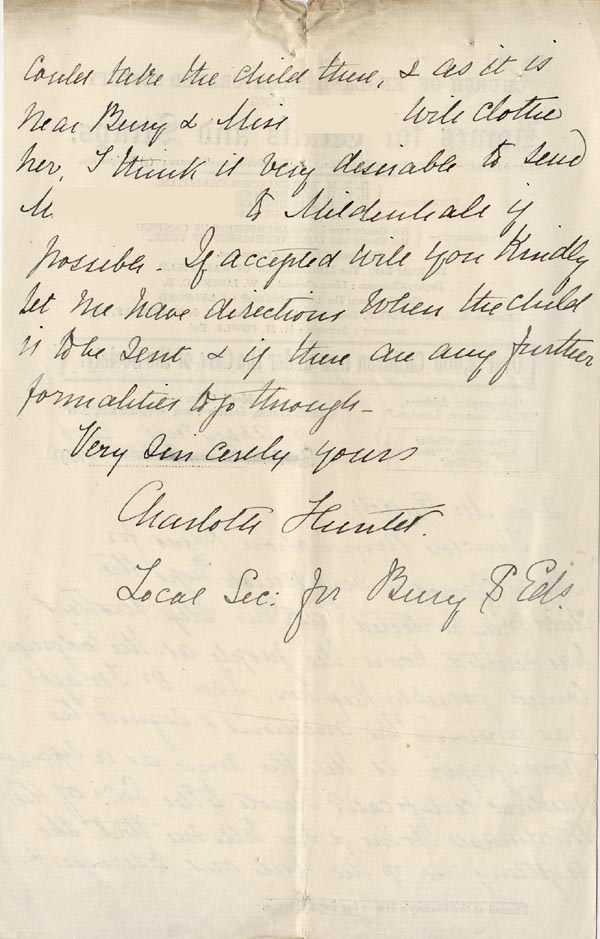 could take the child there, & as it is
near Bury & Miss will clothe
her, I think it very desirable to send
M. to Mildenhall if
possible - If accepted will you kindly
let me have directions when the child
is to be sent & if there are any further
formalities to go through -
Very sincerely yours
Charlotte Hunter.
Local Sec: for Bury St Eds.